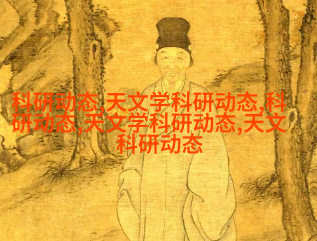 科研动态,天文学科研动态,科
研动态,天文学科研动态,天文
科研动态